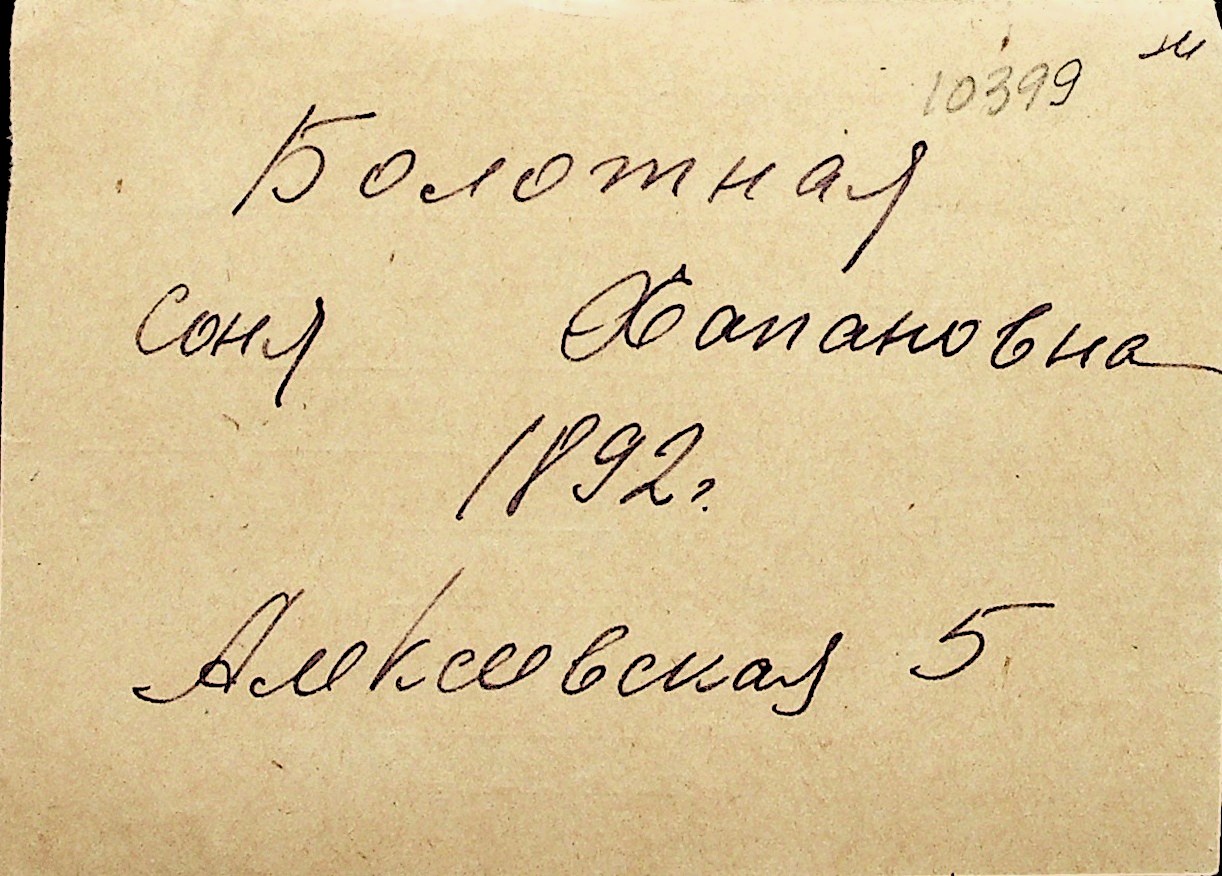 10399 ж
Болотная
Соня Хапановна
1892г.
Алексеевская 5